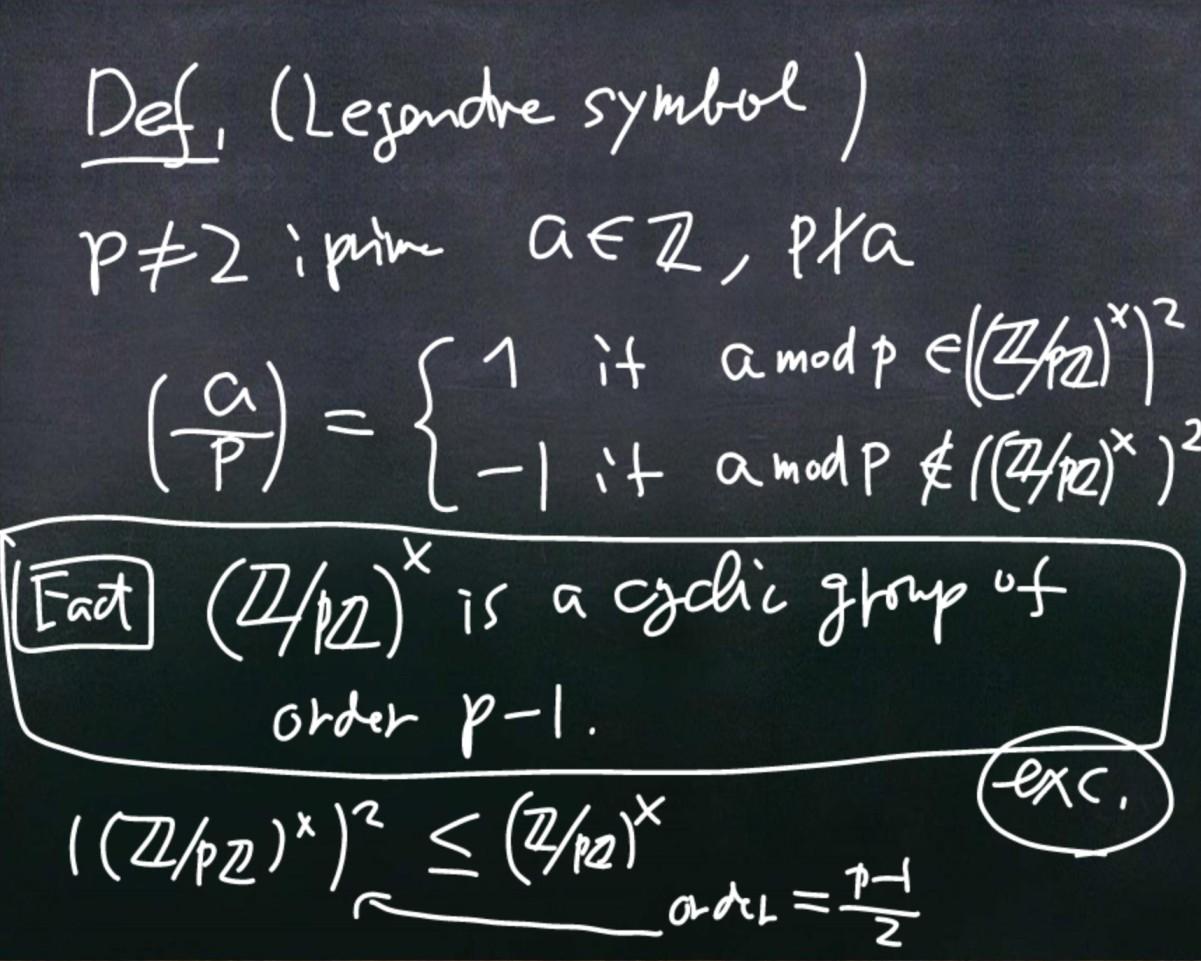 Def. (Legendre symbol)
p≠2 : prime a∈ℤ, p∤a
(a/p) = { 1 if a mod p ∈ ((ℤ/pℤ)^×)^2
-1 if a mod p ∉ ((ℤ/pℤ)^×)^2
Fact (ℤ/pℤ)^× is a cyclic group of
order p-1.
exc.
((ℤ/pℤ)^×)^2 ≤ (ℤ/pℤ)^×
order = (p-1)/2